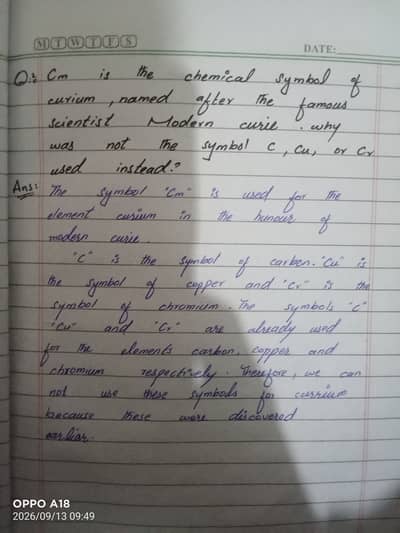 M T W T F S
DATE:
Q: Cm is the chemical symbol of
curium, named after the famous
scientist Modern curie. why
was not the symbol C, Cu, or Cr
used instead?
Ans: The symbol "Cm" is used for the
element curium in the honour of
modern curie.
"C" is the symbol of carbon. "Cu" is
the symbol of copper and "Cr" is the
symbol of chromium. The symbols "C"
"Cu" and "Cr" are already used
for the elements carbon, copper and
chromium respectively. Therefore, we can
not use these symbols for currium
because these were discovered
earliar.
OPPO A18
2026/09/13 09:49